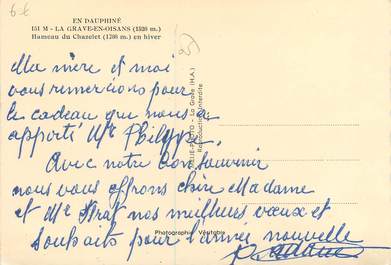 6 €
EN DAUPHINÉ
151 M - LA GRAVE-EN-OISANS (1526 m.)
Hameau du Chazelet (1786 m.) en hiver
Ma mère et moi
vous remercions pour
le cadeau que nous a
apporté Mr Philippe.
Avec notre bon souvenir
nous vous offrons chère Madame
et Mr nos meilleurs vœux et
souhaits pour l'année nouvelle
PHOTO - La Grave (H.A.)
Reproduction interdite
Photographie Véritable